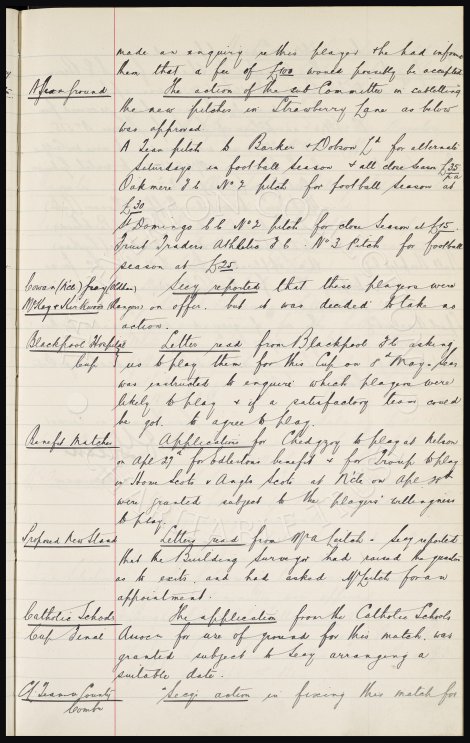 made an enquiry re this player & he had informed
them that a fee of £100 would possibly be accepted
A Team Ground The action of the sub Committee in subletting
the new pitches in Strawberry Lane as below
was approved
A Team pitch to Barker & Dobson Ld for alternate
Saturdays in football season & all close season £35
Oakmere F.C. No 2 pitch for football season at
£30
St Domingo C.C. No 2 pitch for close season at £15.
Fruit Traders Athletic F.C. No 3 Pitch for football
season at £25
Cowan (Nce) Gray (Oldham) Secy reported that these players were
McKay & Kirkwood Rangers on offer, but it was decided to take no
action.
Blackpool Hospital Letter read from Blackpool F.C. asking
Cup us to play them for this Cup on 8th May. Secy
was instructed to enquire which players were
likely to play & if a satisfactory team could
be got. to agree to play.
Benefit Matches Application for Chedgzoy to play at Nelson
on Apl 27th for Eddlestons benefit & for Troup to play
in Home Scots v Anglo Scots at N'cle on Apl 30th
were granted subject to the players' willingness
to play.
Proposed New Stand Letter read from Mr A Leitch. Secy reported
that the Building Surveyor had raised the question
as to exits, and had asked Mr Leitch for an
appointment.
Catholic Schools The application from the Catholic Schools
Cup Final Assocn for use of ground for this match, was
granted subject to Secy arranging a
suitable date.
A Team v County Secy's action in fixing this match for
Combn